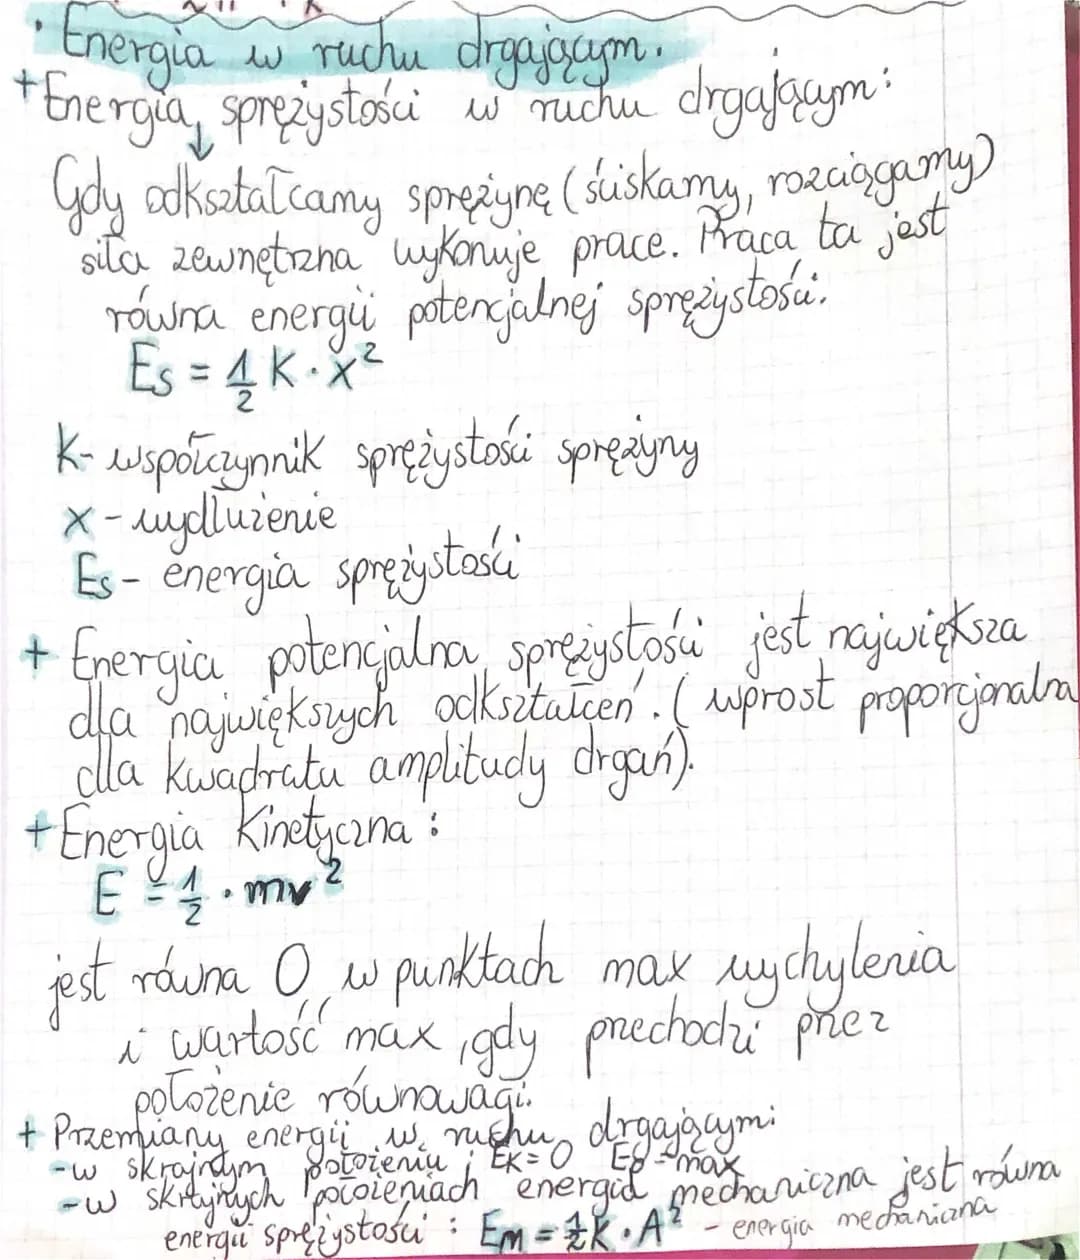 • Energia w ruchu drgającym.
+ Energia sprężystości w ruchu drgającym:
Gdy odkształcamy sprężynę (ściskamy, rozciągamy)
siła zewnętrzna wykonuje prace. Praca ta jest
równa energii potencjalnej sprężystości.
Es = 1/2 K · x²
K - współczynnik sprężystości sprężyny
x - wydłużenie
Es - energia sprężystości
+ Energia potencjalna sprężystości jest największa
dla największych odkształceń. (wprost proporcjonalna
dla kwadratu amplitudy drgań).
+ Energia Kinetyczna:
E = 1/2 · mv²
jest równa 0 w punktach max wychylenia
i wartość max, gdy przechodzi przez
położenie równowagi.
+ Przemiany energii w ruchu drgającym:
- w skrajnym położeniu; Ek = 0 Es = max
- w skrajnych położeniach energia mechaniczna jest równa
energii sprężystości: Em = 1/2 K · A² - energia mechaniczna